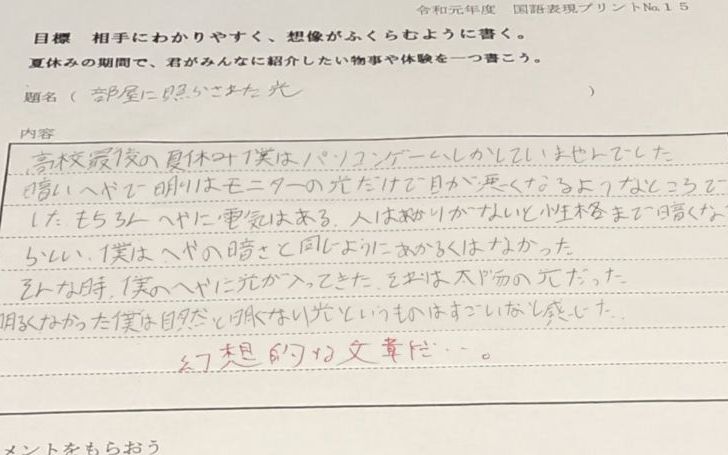 令和元年度 国語表現プリントNo.15
目標 相手にわかりやすく、想像がふくらむように書く。
夏休みの期間で、君がみんなに紹介したい物事や体験を一つ書こう。
題名（ 部屋に照らされた光 ）
内容
高校最後の夏休み僕はパソコンゲームしかしていませんでした
暗いへやで明りはモニターの光だけで目が悪くなるようなところで
した もちろんへやに電気はある、人は明かりがないと性格まで暗くな
らしい、僕はへやの暗さと同じようにあかるくはなかった
そんな時、僕のへやに光が入ってきた、それは太陽の光だった
明るくなかった僕は自然と明るくなり光というものはすごいなと感じた.
幻想的な文章だ…。
メントをもらおう